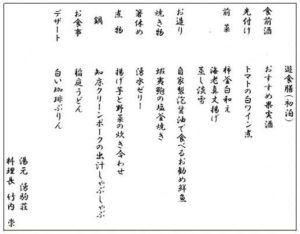 遊食膳(初泊)
食前酒 おすすめ果実酒
先付け トマトの白ワイン煮
前菜 柿釜白和え
海老真丈揚げ
蒸し淡雪
お造り 自家製泡醤油で食べるお勧め鮮魚
焼き物 蝦夷鮑の塩釜焼き
箸休め 湧水ゼリー
煮物 揚げ芋と野菜の炊き合わせ
鍋 知床クリーンポークの出汁しゃぶしゃぶ
お食事 稲庭うどん
デザート 白い珈琲ぷりん
湯元 湧駒荘
料理長 竹内 崇